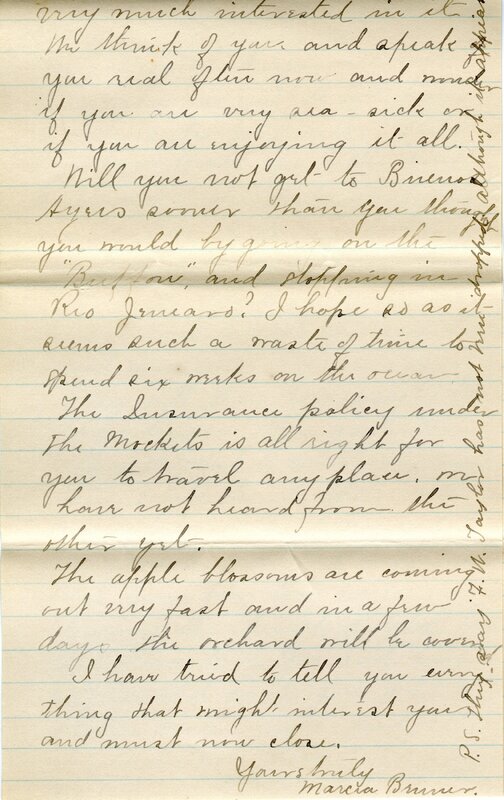 very much interested in it
We think of you and speak
you real often now and wond
if you are very sea-sick or
if you are enjoying it all.
Will you not get to Buenos
Ayers sooner than you thoug
you would by going on the
"Buffon", and stopping in
Rio Jeniaro? I hope so as it
seems such a waste of time to
spend six weeks on the ocean
The Insurance policy under
the Mockets is all right for
you to travel anyplace. we
have not heard from the
other yet.
The apple blossoms are coming
out very fast and in a few
days the orchard will be cover
I have tried to tell you every
thing that might interest you
and must now close.
Yours truly
Marcia Bruner.
P.S. they say F. W. Taylor has not been dropped although it appear